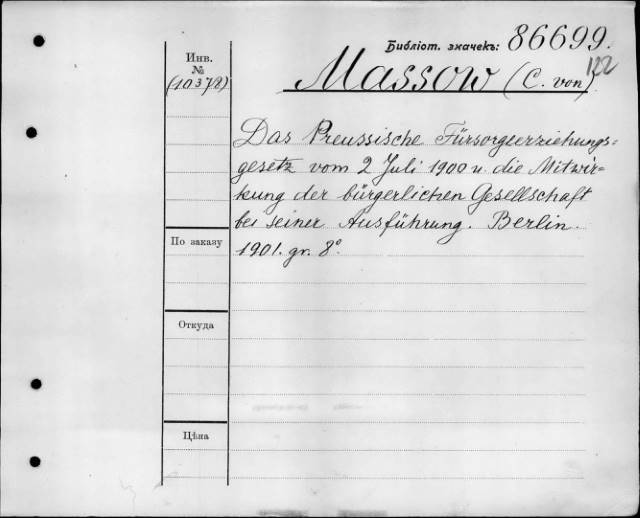 Библіот. значекъ: 86699.
122
Инв.
№
(10378)
Massow (C. von).
Das Preussische Fürsorgeerziehungs=
gesetz vom 2 Juli 1900 u. die Mitwir=
kung der bürgerlichen Gesellschaft
bei seiner Ausführung. Berlin.
1901. gr. 8°.
По заказу
Откуда
Цѣна